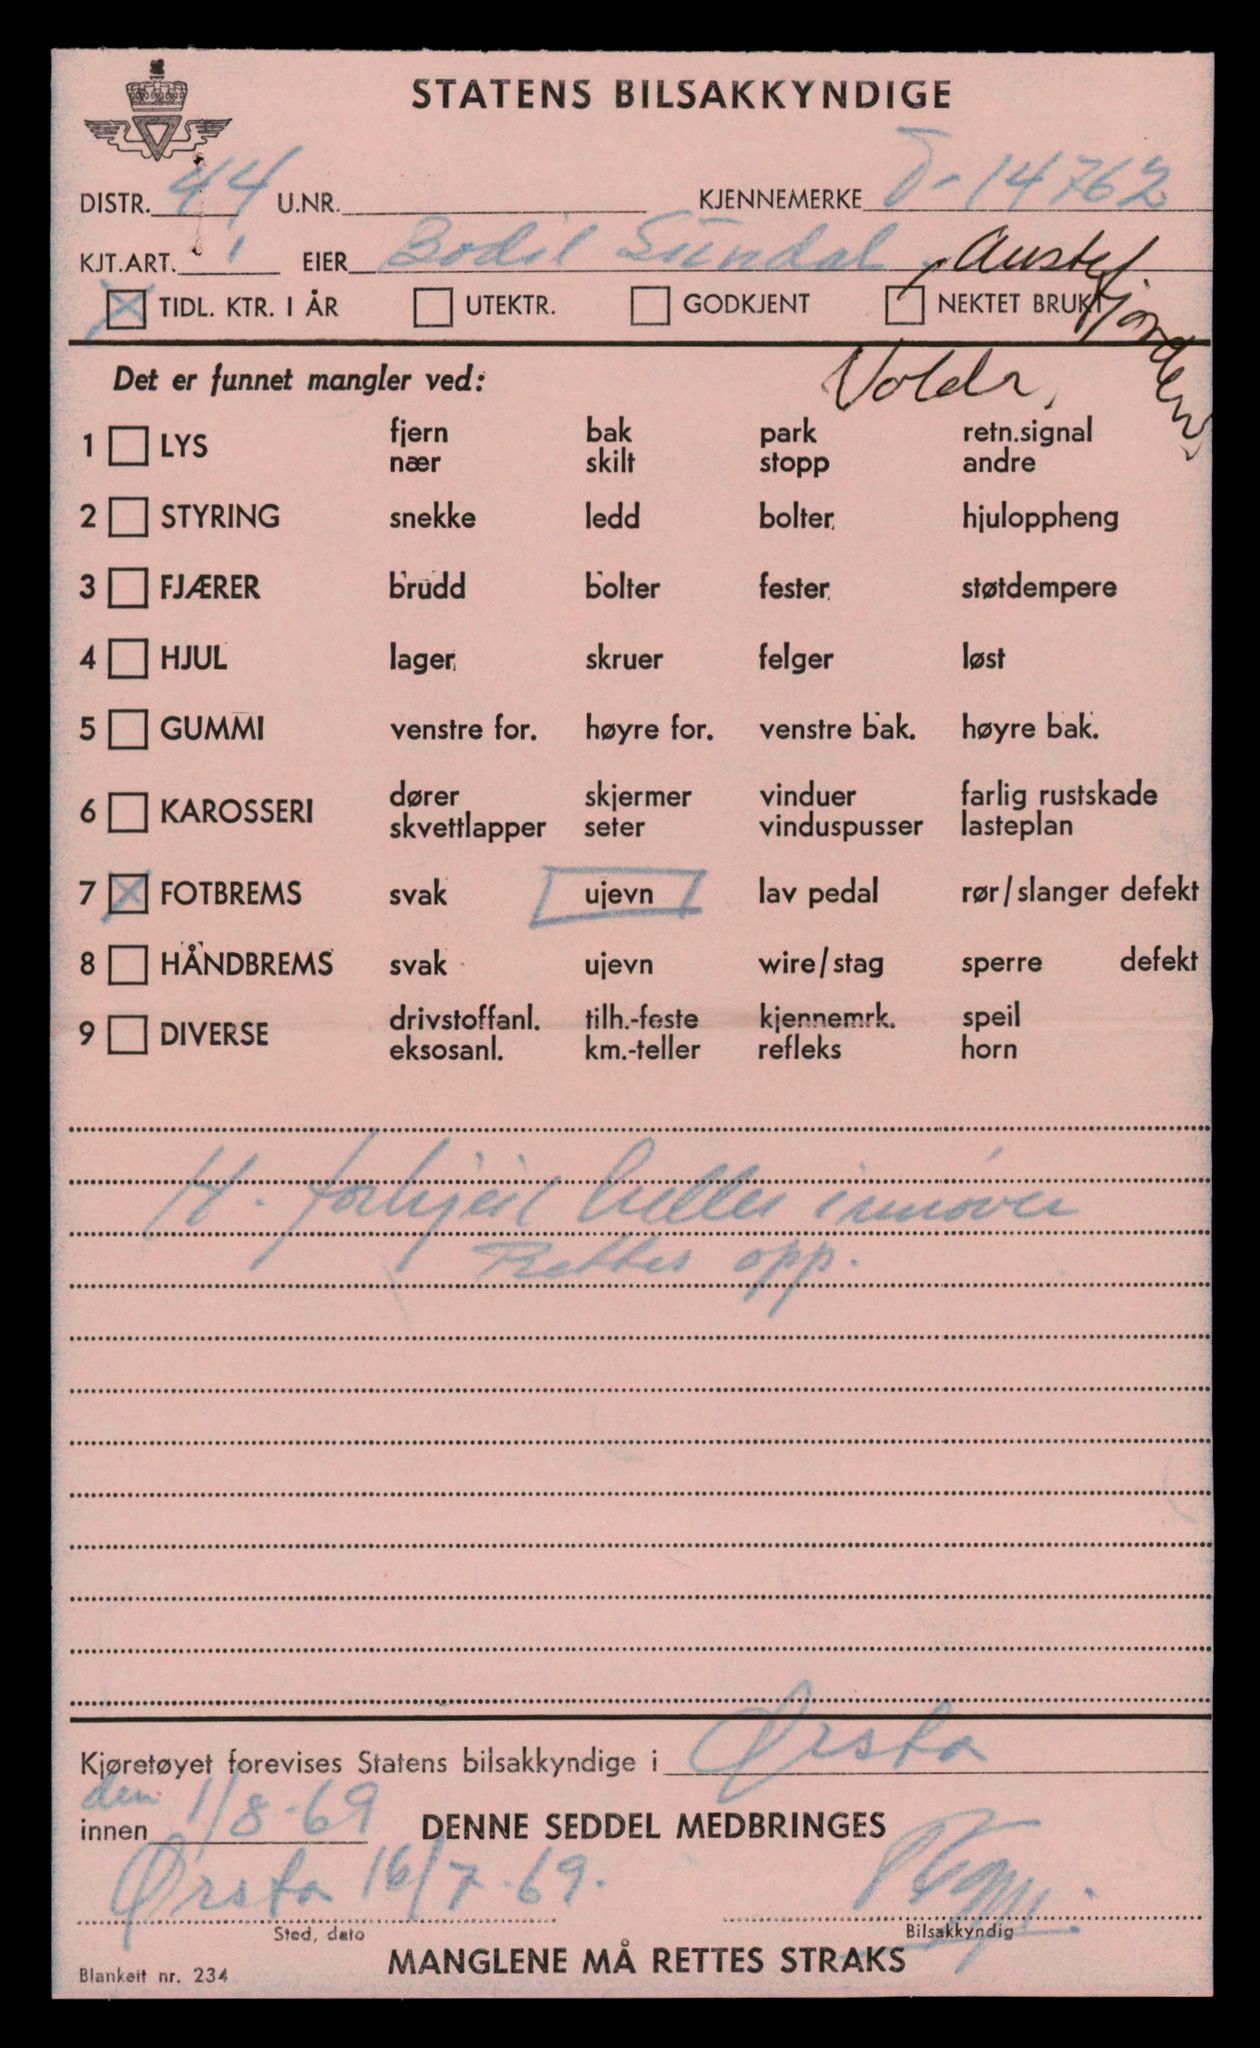 STATENS BILSAKKYNDIGE
DISTR. 44 U.NR. KJENNEMERKE T-14762
KJT.ART. 1 EIER Bodil Sundal, Austefjorden,
TIDL. KTR. I ÅR UTEKTR. GODKJENT NEKTET BRUKT
Det er funnet mangler ved: Volda,
1 LYS fjern bak park retn.signal
nær skilt stopp andre
2 STYRING snekke ledd bolter hjuloppheng
3 FJÆRER brudd bolter fester støtdempere
4 HJUL lager skruer felger løst
5 GUMMI venstre for. høyre for. venstre bak. høyre bak.
6 KAROSSERI dører skjermer vinduer farlig rustskade
skvettlapper seter vinduspusser lasteplan
7 FOTBREMS svak ujevn lav pedal rør/slanger defekt
8 HÅNDBREMS svak ujevn wire/stag sperre defekt
9 DIVERSE drivstoffanl. tilh.-feste kjennemrk. speil
eksosanl. km.-teller refleks horn
H. forhjul heller innover
Rettes opp.
Kjøretøyet forevises Statens bilsakkyndige i Ørsta
den
innen 1/8-69 DENNE SEDDEL MEDBRINGES
Ørsta 16/7-69.
Sted, dato Bilsakkyndig
MANGLENE MÅ RETTES STRAKS
Blankett nr. 234